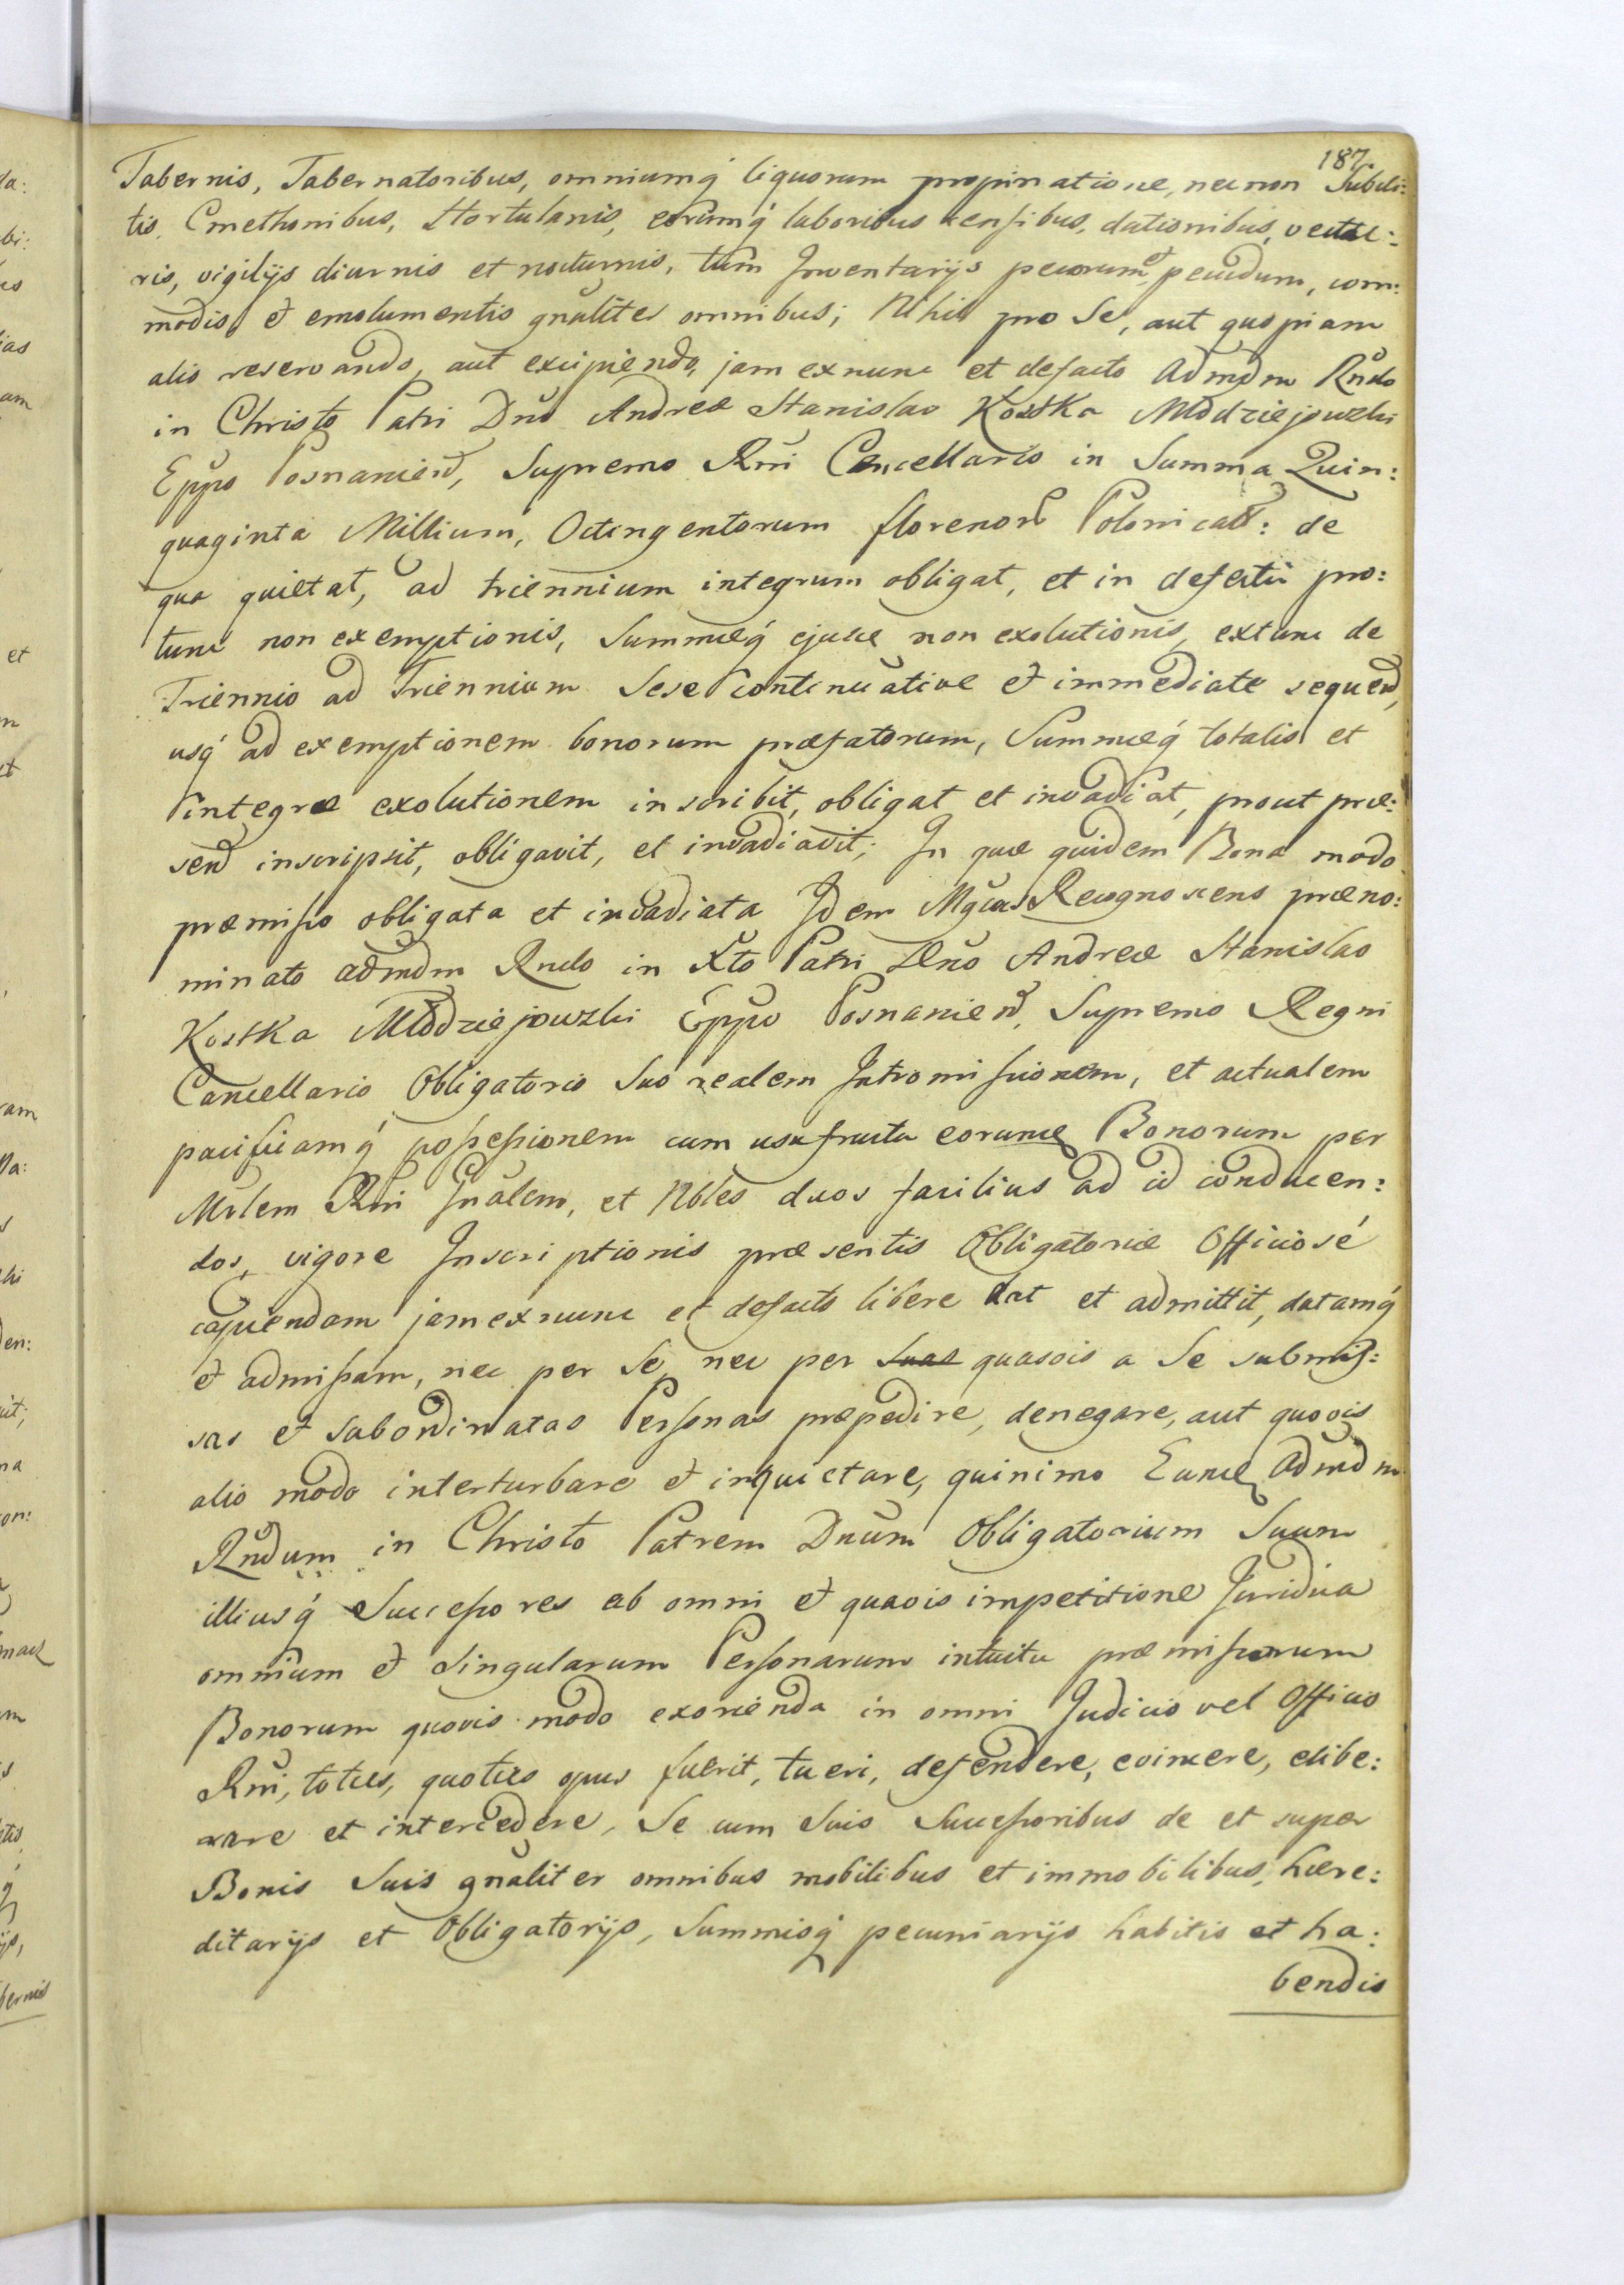 187
Tabernis, Tabernatoribus, omniumq́ liquorum propinatione, necnon Subdi:
tis, Cmethonibus, Hortulanis, eorumq́ laboribus censibus, dationibus, vectu:
ris, vigilijs diurnis et nocturnis, tum Inventarijs pecorum et pecudum, com:
modis et emolumentis gnaliter omnibus; Nihil pro Se, aut quopiam
alio reservando, aut excipiendo, jam exnunc et defacto Admdm Rndo
in Christo Patri Dno Andreæ Stanislao Kostka Młodziejowzki
Eppo Posnanien, Supremo Rni Cancellario in Summa Quin:
quaginta Millium, Octingentorum florenor Polonical: de
qua quietat, ad triennium integrum obligat, et in defectu pro:
tunc non exemptionis, Summæq́ ejusce non exolutionis, extunc de
Triennio ad Triennium Sese continuative et immediate sequen,
usq́ ad exemptionem bonorum præfatorum, Summæq́ totalis et
integræ exolutionem inscribit, obligat et invadiat, prout præ:
sen inscripsit, obligavit, et invadiavit; In quæ quidem Bona modo
præmisso obligata et invadiata Idem Mgcus Recognoscens præno:
minato admdm Rndo in Xto Patri Dno Andreæ Stanislao
Kostka Młodziejowzki Eppo Posnanien, Supremo Regni
Cancellario Obligatorio Suo realem Intromissionem, et actualem
pacificamq́ possessionem cum usufructu eorunce Bonorum per
Mrlem Rni Gnalem, et Nbles duos facilius ad id conducen:
dos, vigore Inscriptionis præsentis Obligatoriæ Officiosé
capiendam jam exnunc et defacto libere dat et admittit, datamq́
et admissam, nec per Se, nec per suas quasvis a Se submis:
sas et subordinatas Personas præpedire, denegare, aut quovis
alio modo interturbare et inquietare, quinimo Eunce Admdm
Rndum in Christo Patrem Dnum Obligatorium Suum
illiusq́ Successores ab omni et quavis impetitione Juridica
omnium et singularum Personarum intuitu præmissorum
Bonorum quovis modo exorienda in omni Judicio vel Officio
Rni, toties, quoties opus fuerit, tueri, defendere, evincere, elibe:
rare et intercedere, Se cum Suis Successoribus de et super
Bonis Suis gnaliter omnibus mobilibus et immobilibus, hære:
ditarijs et Obligatorijs, Summisq́ pecuniarijs habitis et ha:
bendis